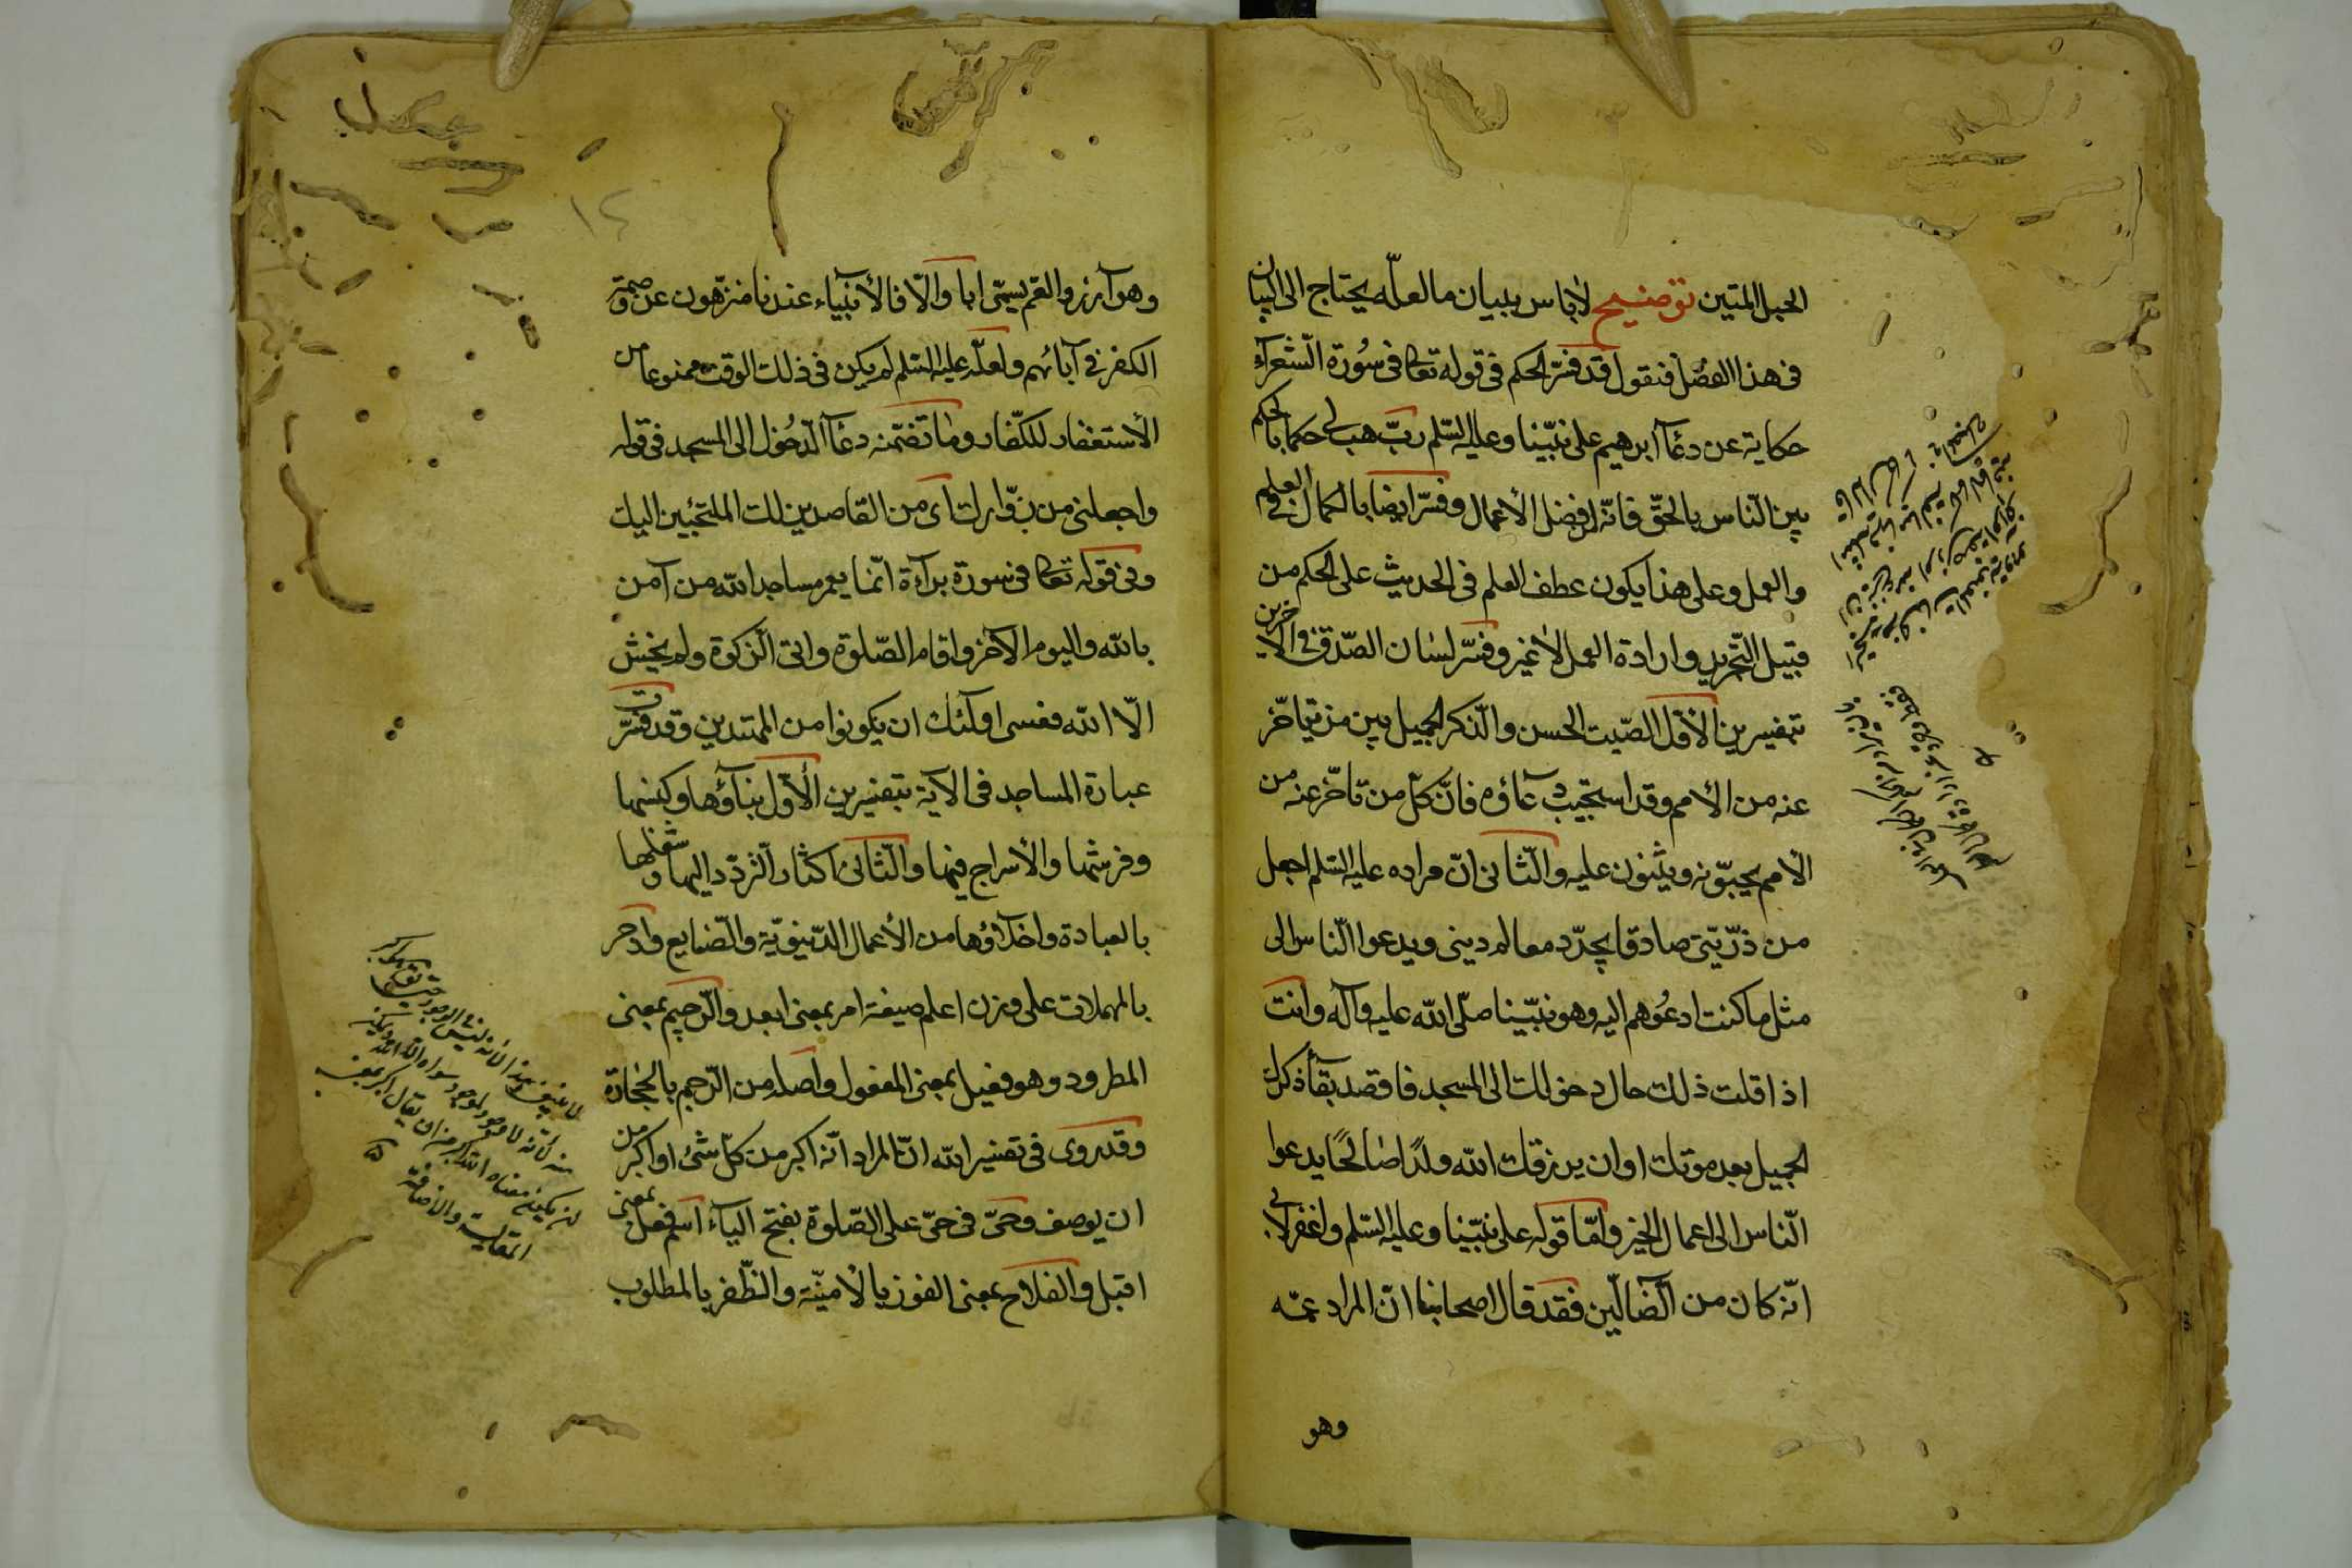 الحبل المتين توضيح لا باس ببيان ما لعلّه يحتاج الى البيان
فى هذا الفصل فنقول قد فسّر الحكم فى قوله تعا فى سُورة الشعرآء
حكاية عن دعآء ابرهيم على نبيّنا وعليه السّلم ربّ هب لى حكما بالحكم
بين النّاس بالحقّ فانّه افضل الأعمال وفسّر ايضا بالكمال فى العلم
والعمل وعلى هذا يكون عطف العلم فى الحديث على الحكم من
قبيل التّجريد وارادة العمل لا غير وفسّر لسان الصّدق فى الاخرين
بتفسيرين الأوّل الصّيت الحسن والّذكر الجميل بين من يتأخّر
عنه من الأمم وقد استجيب دعآؤه فانّ كلّ من تأخّر عنه من
الأمم يحبّونه ويثنون عليه والثّانى انّ مراده عليه السّلم اجعل
من ذرّيّتى صادقا يجدّد معالم دينى ويدعوا النّاس الى
مثل ما كنت ادعُوهم اليه وهو نبيّنا صلّى الله عليه وآله وانت
اذا قلت ذلك حال دخولك الى المسجد فاقصد بقآء ذكرك
الجميل بعد موتك او ان يرزقك الله ولدًا صالحًا يدعوا
النّاس الى اعمال الخير وامّا قوله على نبيّنا وعليه السّلم واغفر لابى
انّه كان من الضّالّين فقد قال اصحابنا انّ المراد عمّه
وهو
١٤
وهو آزر والعم يسمّى ابا والّا فالأنبياء عندنا منزّهون عن وصمة
الكفر فى آبائهم ولعلّه عليه السّلم لم يكن فى ذلك الوقت ممنوعا من
الأستغفار للكفّار وما تضمّنه دعآء الدّخُول الى المسجد فى قوله
واجعلنى من زوّارك اى من القاصدين لك الملتجئين اليك
وفى قوله تعا فى سورة برآءة انّما يعمر مساجد الله من آمن
بالله واليوم الآخر واقام الصّلوة واتى الزّكوة ولم يخش
الّا الله فعسى اولئك ان يكونوا من المهتدين وقد فسّرت
عبارة المساجد فى الآية بتفسيرين الأوّل بناؤها وكنسها
وفرشها والأسراج فيها والثّانى اكثار التّردّد اليها وشغلها
بالعبادة واخلاؤها من الأعمال الدّنيويّة والصّنايع وادحر
بالمهملات على وزن اعلم صيغة امر بمعنى ابعد والرّجيم بمعنى
المطرود وهو فعيل بمعنى المفعول واصله من الرّجم بالحجارة
وقد روى فى تفسير الله انّ المراد انّه اكبر من كلّ شئ او اكبر من
ان يوصف وحىّ فى حىّ على الصّلوة بفتح الياء اسم فعل بمعنى
اقبل والفلاح بمعنى الفوز بالأمنيّة والظّفر بالمطلوب